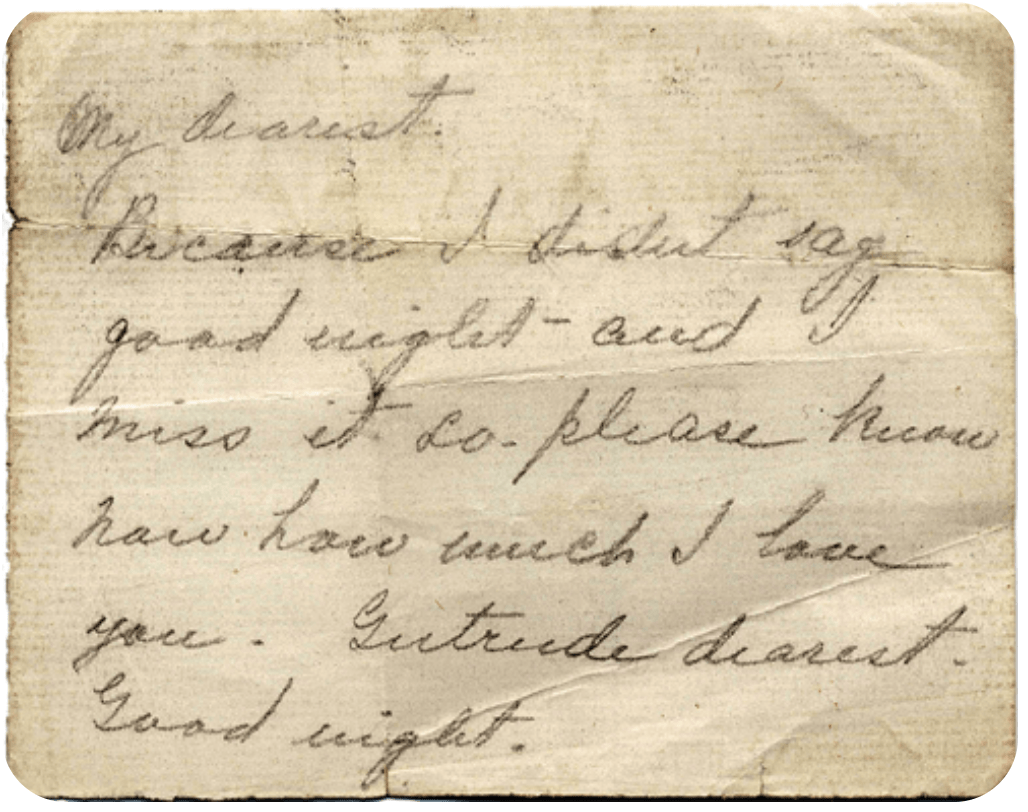 My dearest.
Because I didnt say
good night - and I
miss it so - please know
now how much I love
you. Gertrude dearest.
Good night.